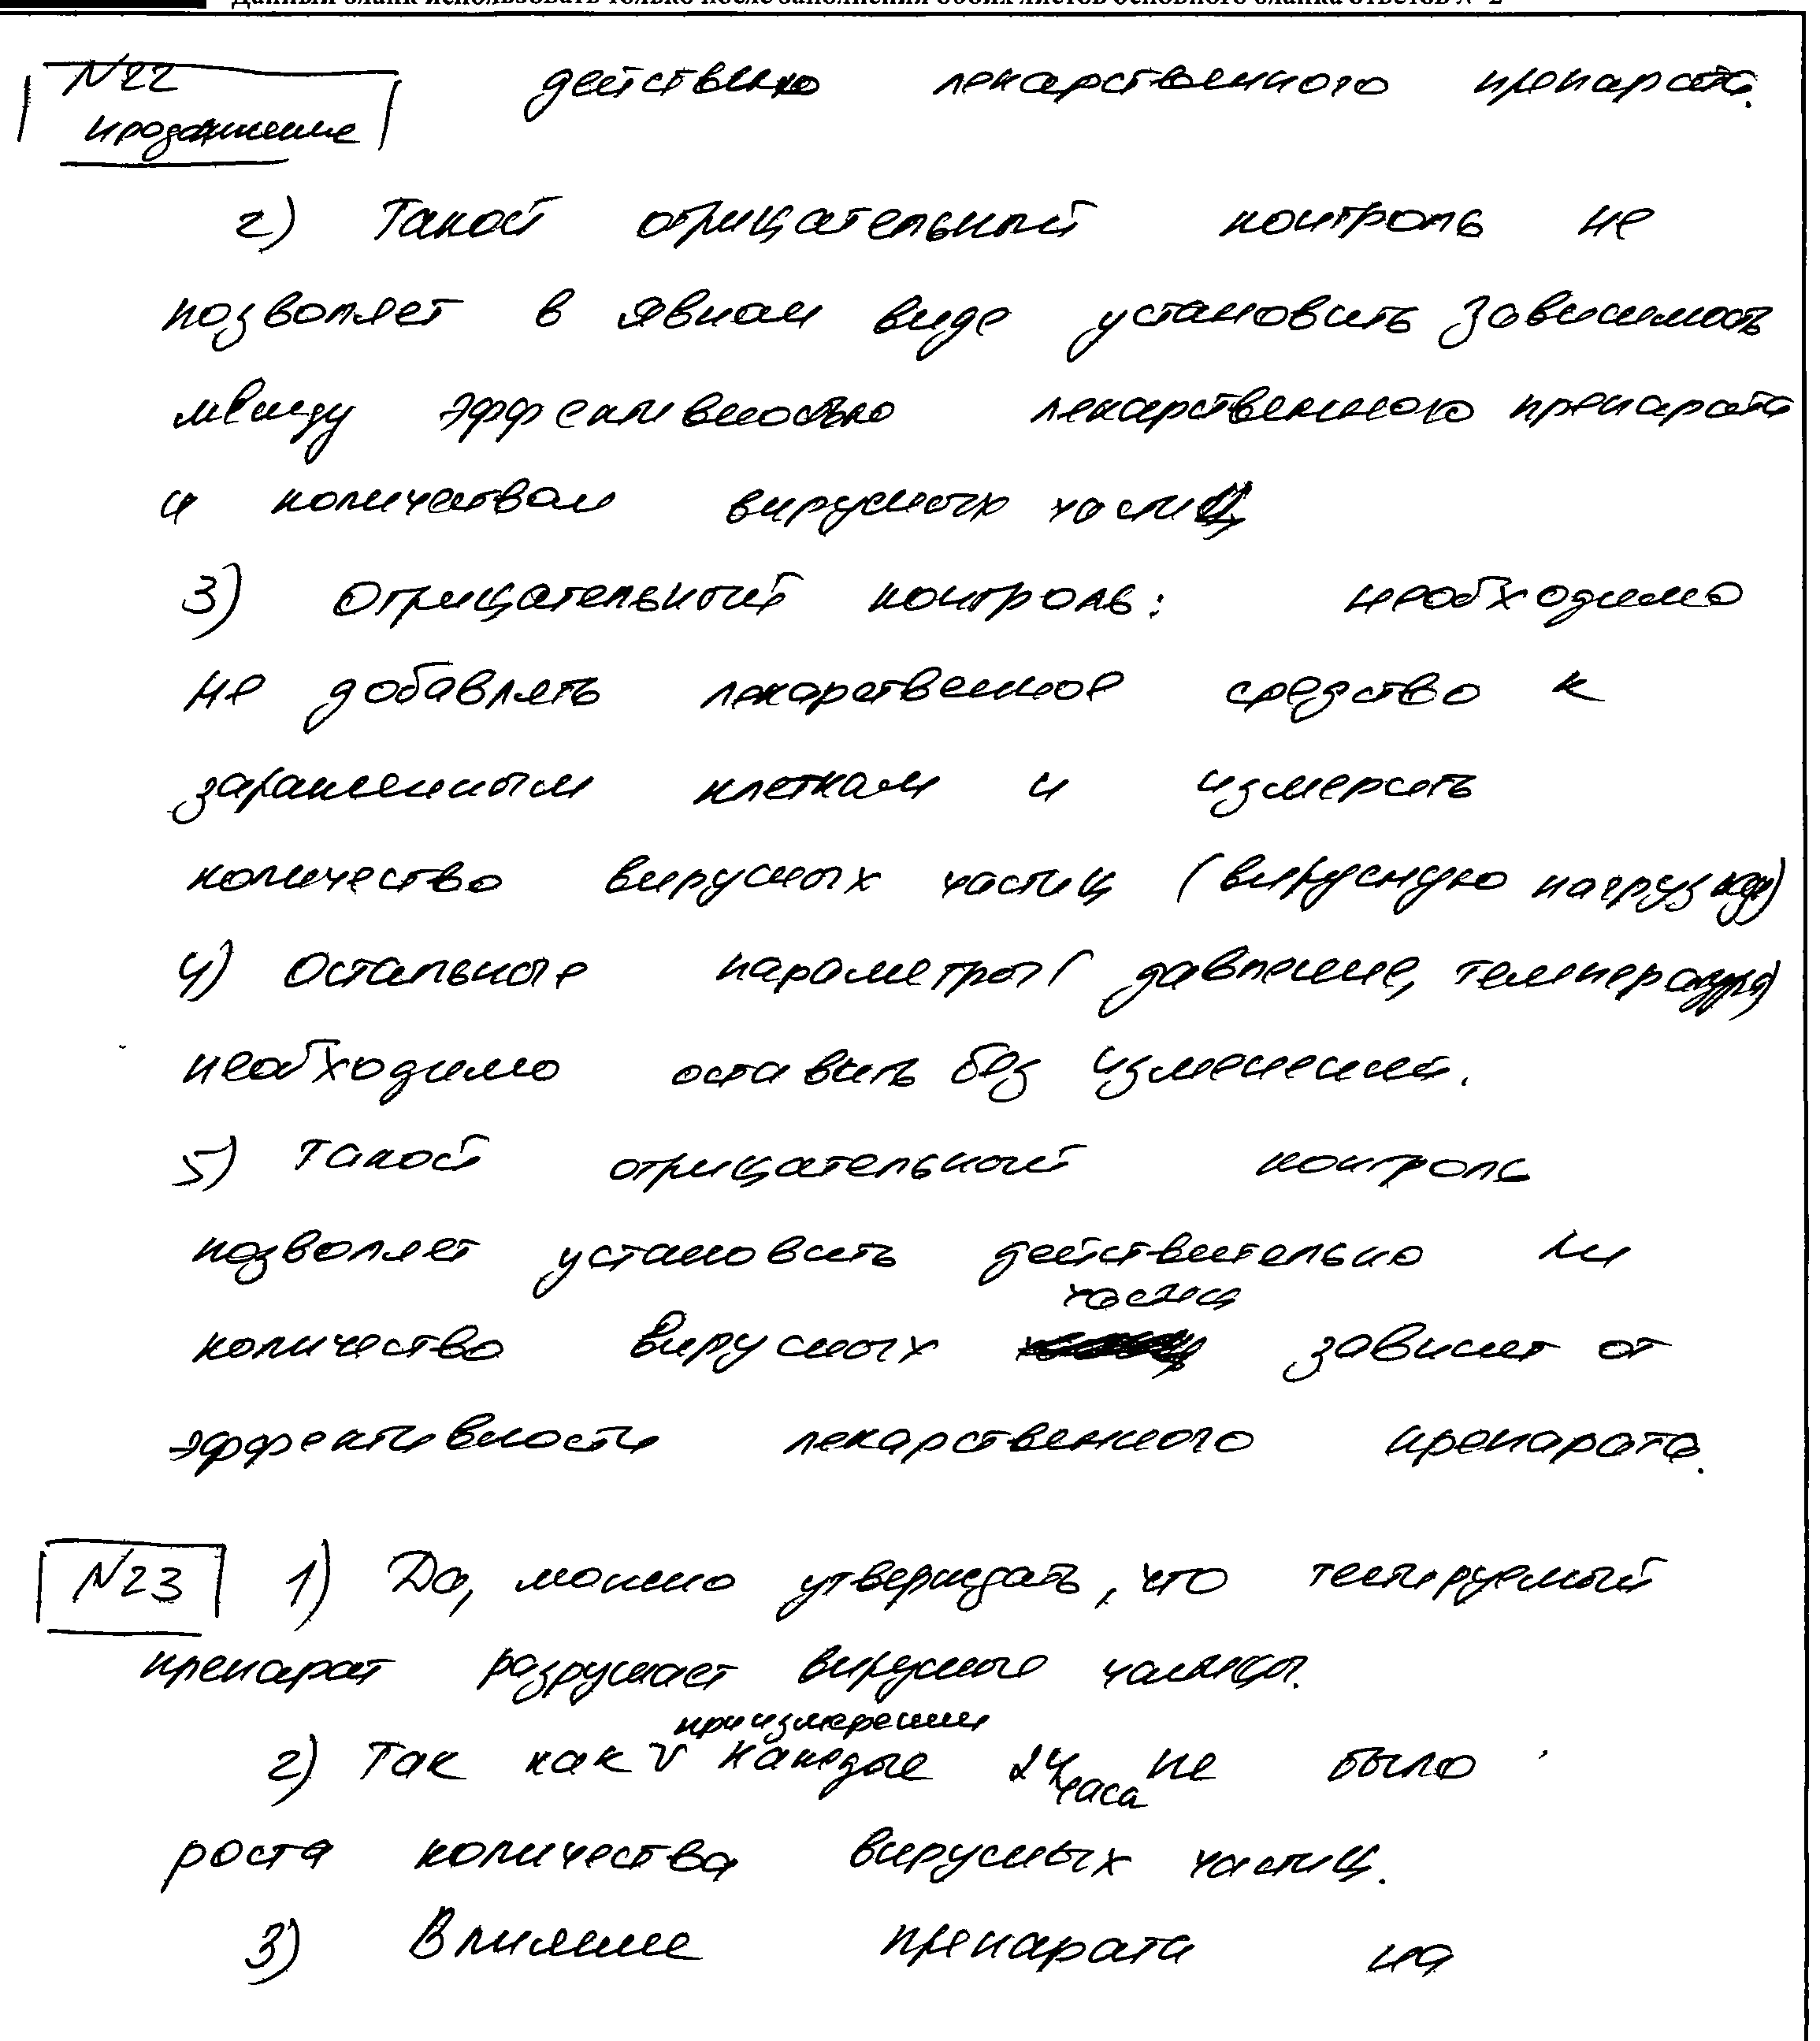 Данный бланк использовать только после заполнения обоих листов основного бланка ответов № 2
№22 действию лекарственного препарата.
продолжение
2) Такой отрицательный контроль не
позволяет в явном виде установить зависимость
между эффективностью лекарственного препарата
и количеством вирусных частиц
3) Отрицательный контроль: необходимо
не добавлять лекарственное средство к
зараженным клеткам и измерять
количество вирусных частиц (вирусную нагрузку)
4) Остальные параметры (давление, температура)
необходимо оставить без изменений.
5) Такой отрицательный контроль
позволяет установить действительно ли
количество вирусных частиц зависит от
эффективности лекарственного препарата.
№23 1) Да, можно утверждать, что тестируемый
препарат разрушает вирусные частицы.
2) Так как при измерении каждые 24 часа не было
роста количества вирусных частиц.
3) Влияние препарата на